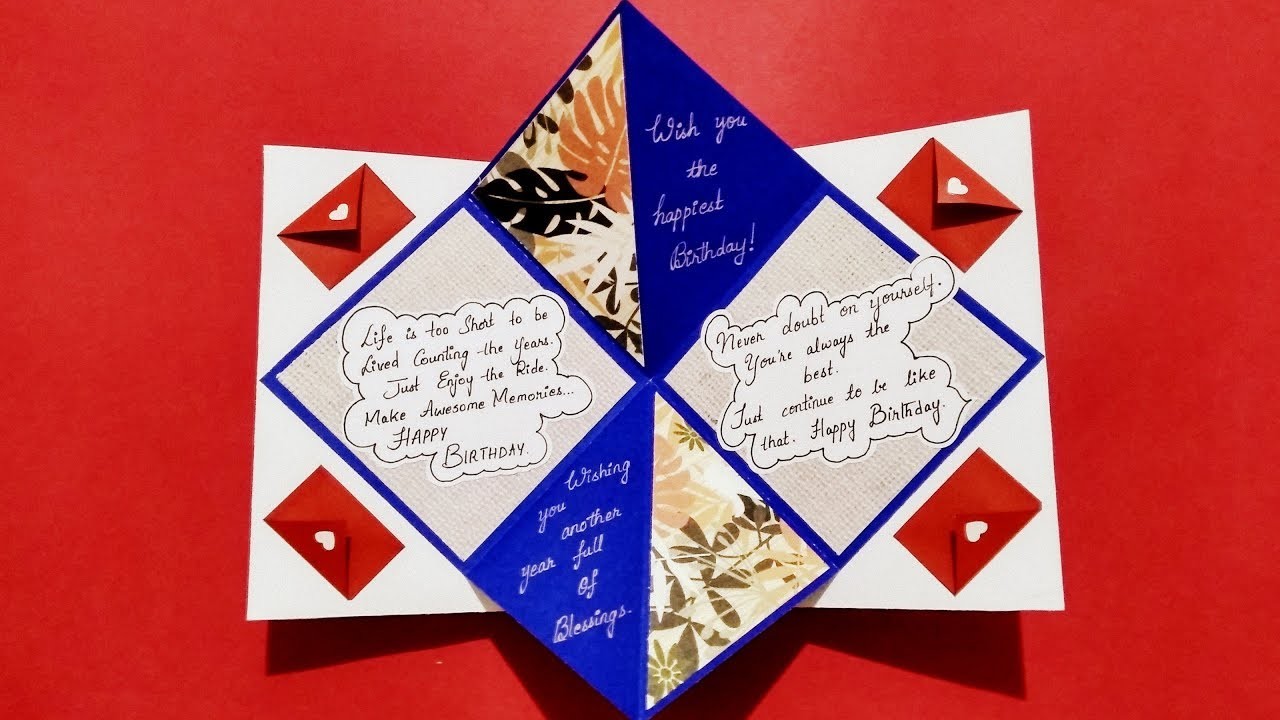 Wish you
the
happiest
Birthday!
Life is too Short to be
Lived Counting the Years.
Just Enjoy the Ride.
Make Awesome Memories...
HAPPY
BIRTHDAY.
Never doubt on yourself.
You're always the
best.
Just continue to be like
that. Happy Birthday.
Wishing
you another
year full
Of
Blessings.